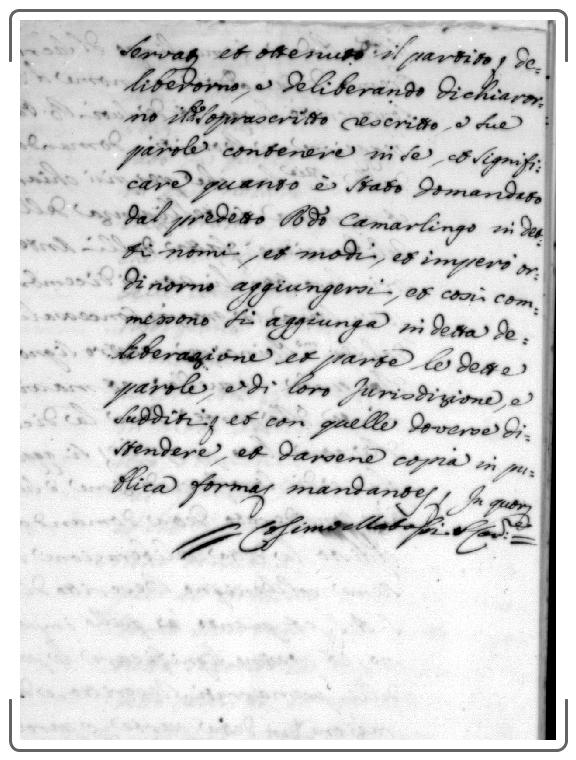 servatis et ottenuto il partito de-
liberorno, e deliberando dichiaror-
no il soprascritto rescritto, e sue
parole contenere in se, et signifi-
care quanto è stato domandato
dal predetto Camarlingo in det-
ti nomi, et modi, et imperò or-
dinorno aggiungersi, et così com-
messono si aggiunga in detta de-
liberazione et parte le dette
parole, e di loro Jurisdizione, e
sudditi, et con quelle doverse di-
stendere, et darsene copia in pu-
blica forma, mandantes, In quor: